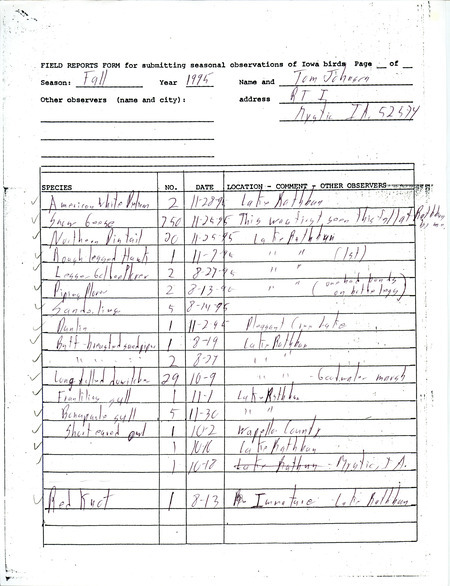 FIELD REPORTS FORM for submitting seasonal observations of Iowa birds Page __ of __
Season: Fall Year 1995 Name and Tom Johnson
Other observers (name and city): address RT 1
Mystic IA. 52574
SPECIES NO. DATE LOCATION - COMMENT - OTHER OBSERVERS
American White Pelican 2 11-28-95 Lake Rathbun
Snow Goose 750 11-25-95 This was first seen this fall at Rathbun by me.
Northern Pintail 20 11-25-95 Lake Rathbun
Rough legged Hawk 1 11-7-95 " " (1st)
Lesser Golden Plover 2 8-27-95 " "
Piping Plover 2 8-13-95 " " (one had bands on both legs)
Sanderling 5 8-14-95
Dunlin 1 11-2-95 Pleasant Lake
Buff-breasted sandpiper 1 8-19 Lake Rathbun
" " " 2 8-27 " "
Long billed dowitcher 29 10-9 " " - backwater marsh
Franklins gull 1 11-1 Lake Rathbun
Bonaparte gull 5 11-30 " "
Short eared owl 1 10-2 Wapello County
1 10-16 Lake Rathbun
1 10-18 Lake Rathbun - Mystic, IA.
Red Knot 1 8-13 Immature Lake Rathbun